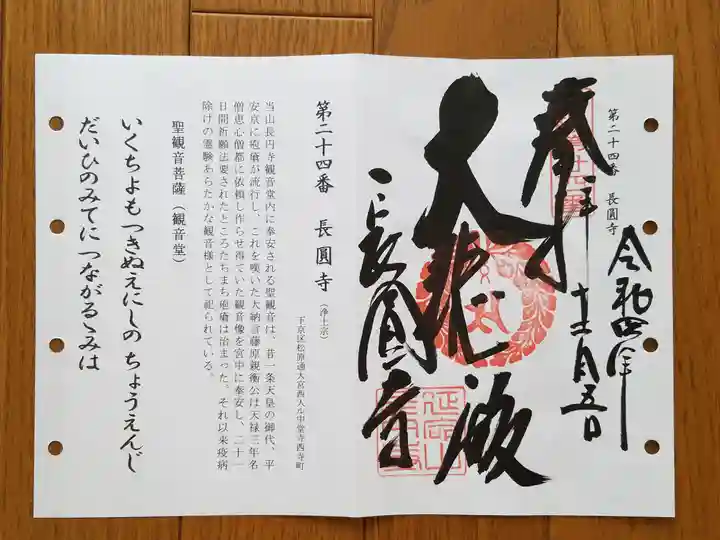 第二十四番 長圓寺
奉拝
令和四年
十二月五日
大悲殿
長圓寺
第二十四番 長圓寺(浄土宗)
下京区松原通大宮西入ル中堂寺西寺町
当山長円寺観音堂内に奉安される聖観音は、昔一条天皇の御代、平
安京に疱瘡が流行し、これを嘆いた大納言藤原親衡公は天禄三年名
僧恵心僧都に依頼し作らせ得ていた観音像を宮中に奉安し、二十一
日間祈願法要されたところたちまち疱瘡は治まった。それ以来疫病
除けの霊験あらたかな観音様として祀られている。
聖観音菩薩(観音堂)
いくちよもつきぬえにしのちょうえんじ
だいひのみてにつながるゝみは